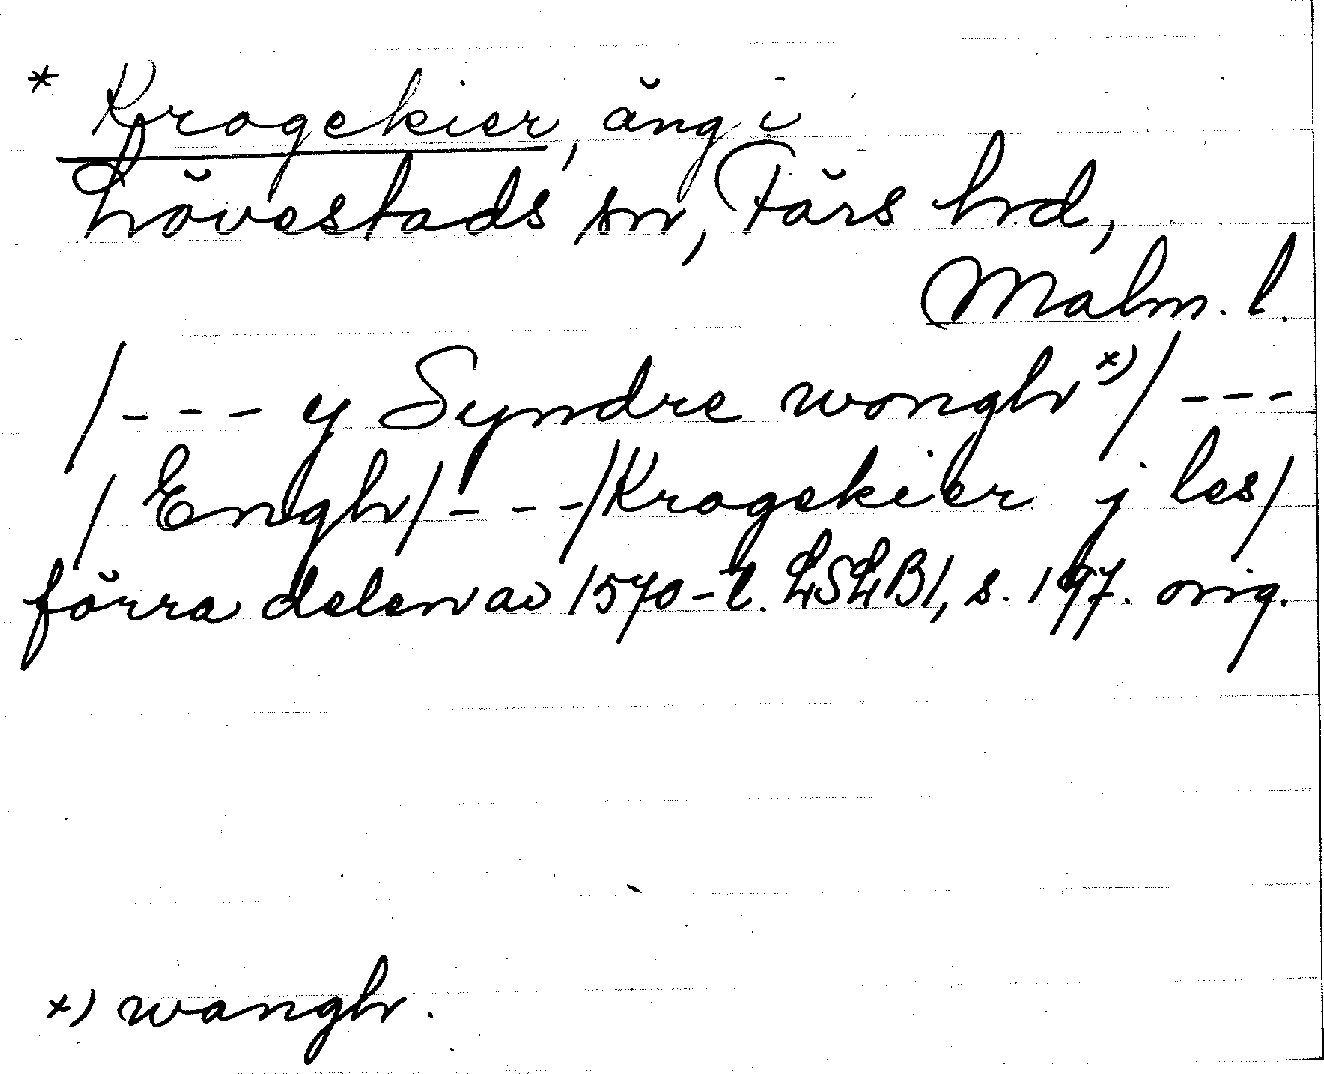 * Krogekier, äng i
Lövestads sn, Färs hd,
Malm. l.
/--- y Syndre wongh *)/ ---
/ Engh/ --- /Krogekier j les/
förra delen av 1570-t. LSLB1, s. 197. orig.
*) wangh.